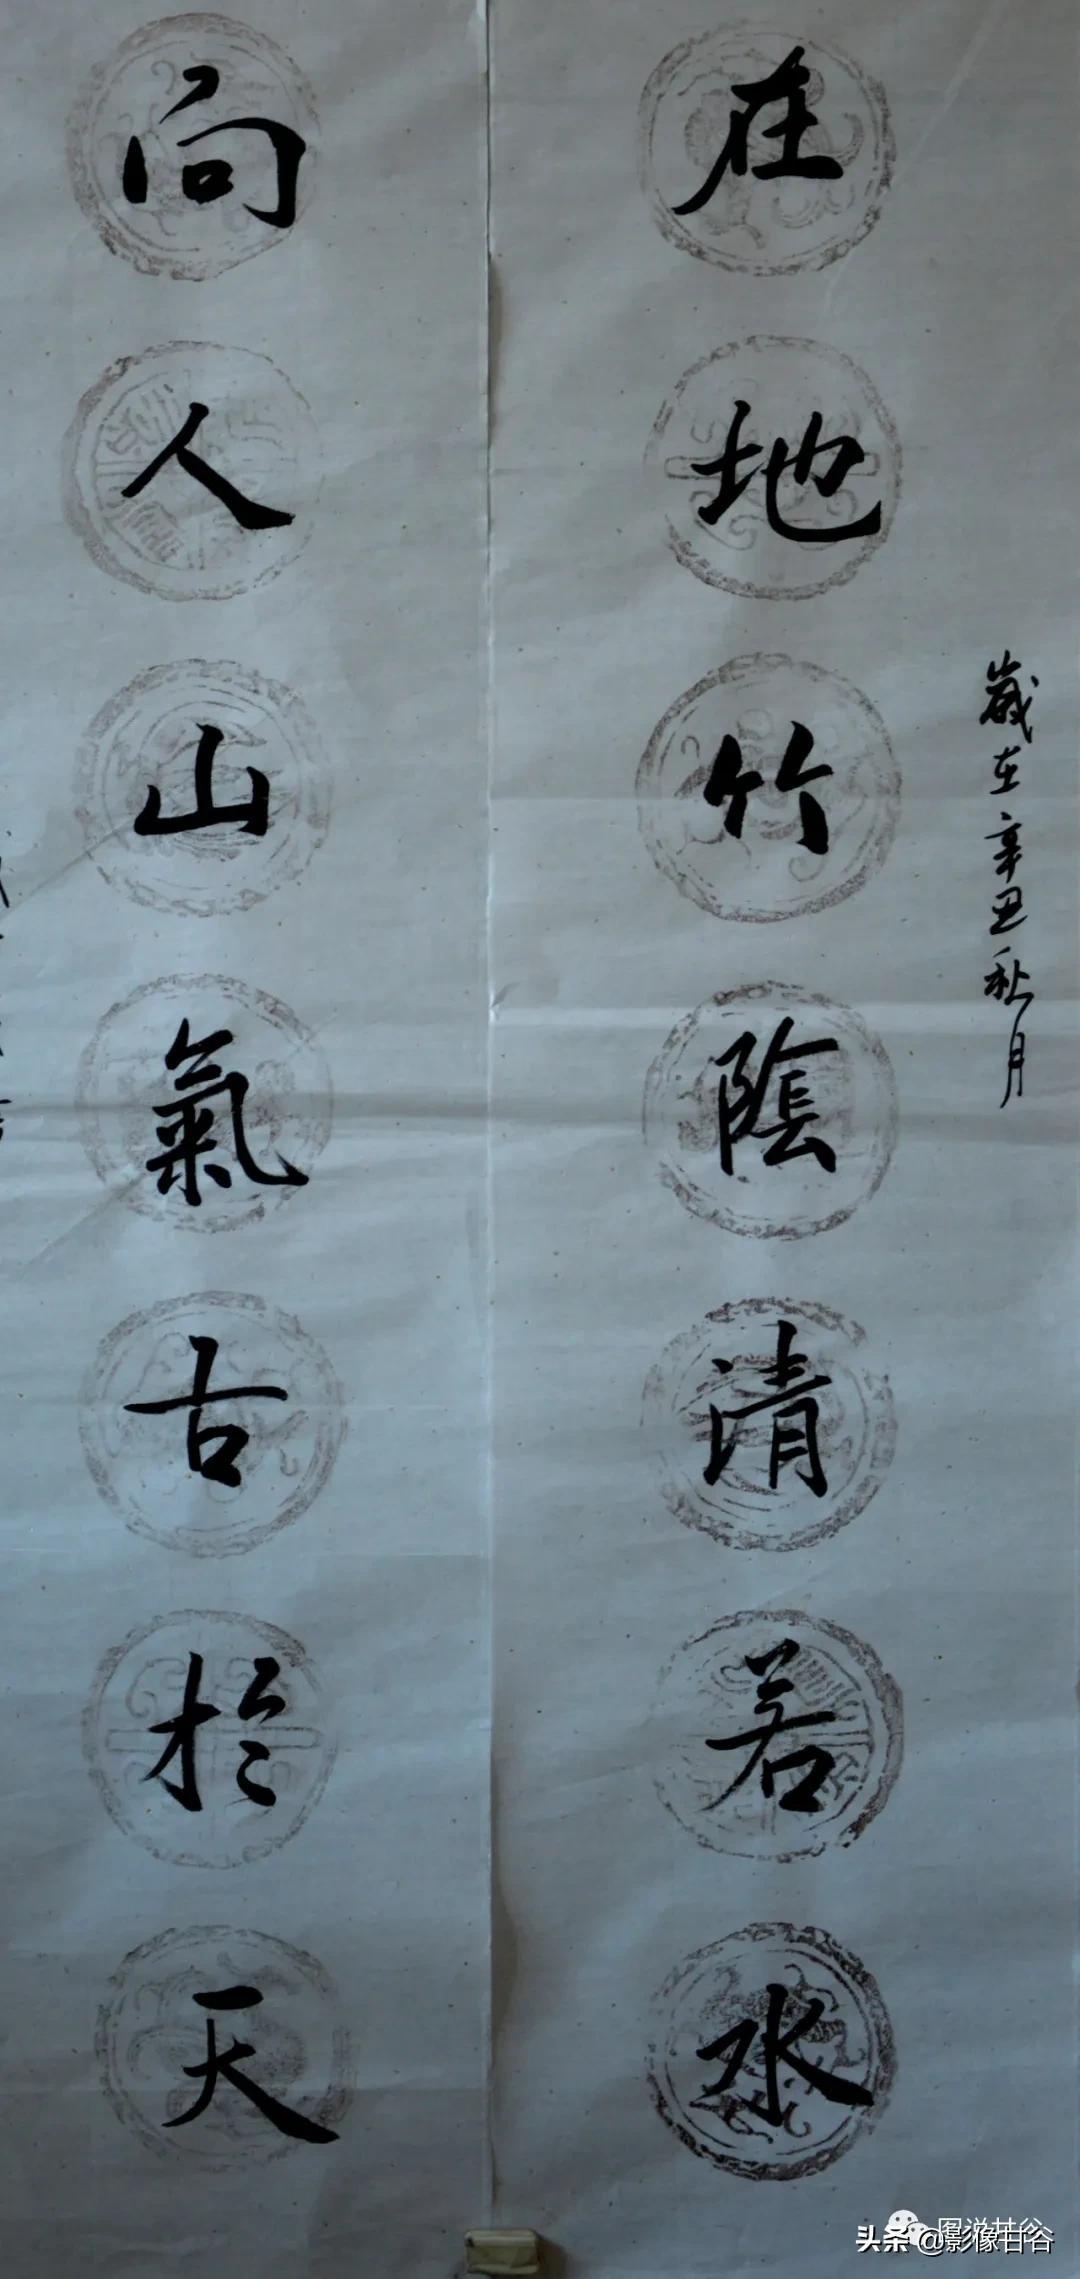 歲在辛丑秋月
在地竹陰清若水
向人山氣古於天
图说甘谷
头条 @影像甘谷